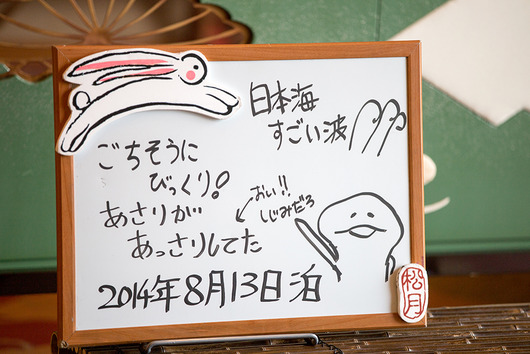 日本海
すごい波
ごちそうに
びっくり!
あさりが
あっさりしてた
おい!!
しじみだろ
2014年8月13日泊
松月